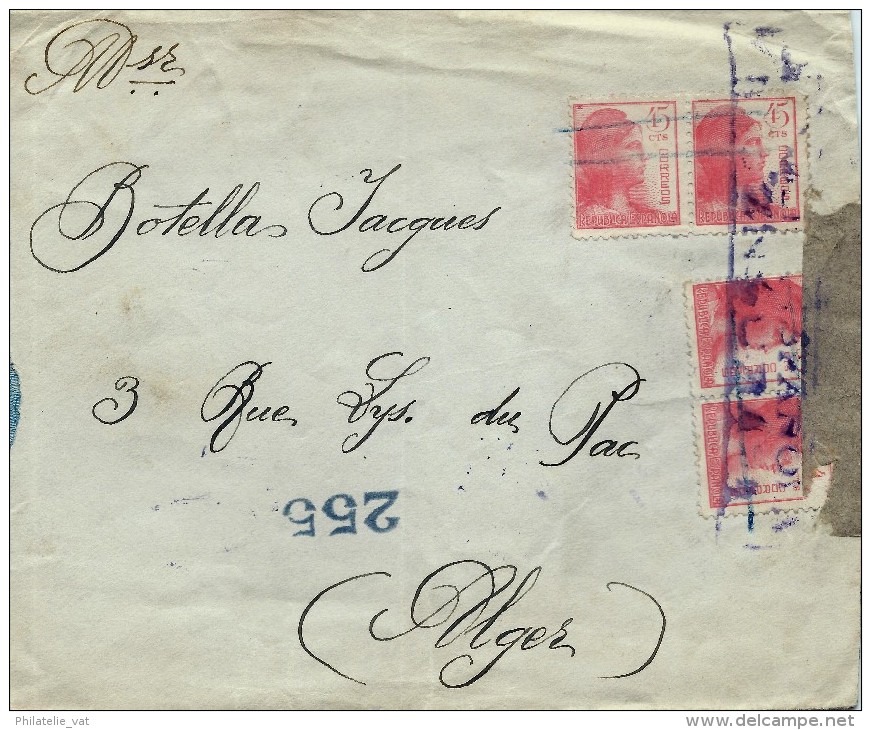 Msr
Botella Jacques
3 Rue Lys. du Pac
(Alger)
255
45 CTS
CORREOS
REPUBLICA ESPAÑOLA
45 CTS
CORREOS
REPUBLICA ESPAÑOLA
CORREOS
REPUBLICA ESPAÑOLA
CORREOS
REPUBLICA ESPAÑOLA
Philatelie_vat
www.delcampe.net